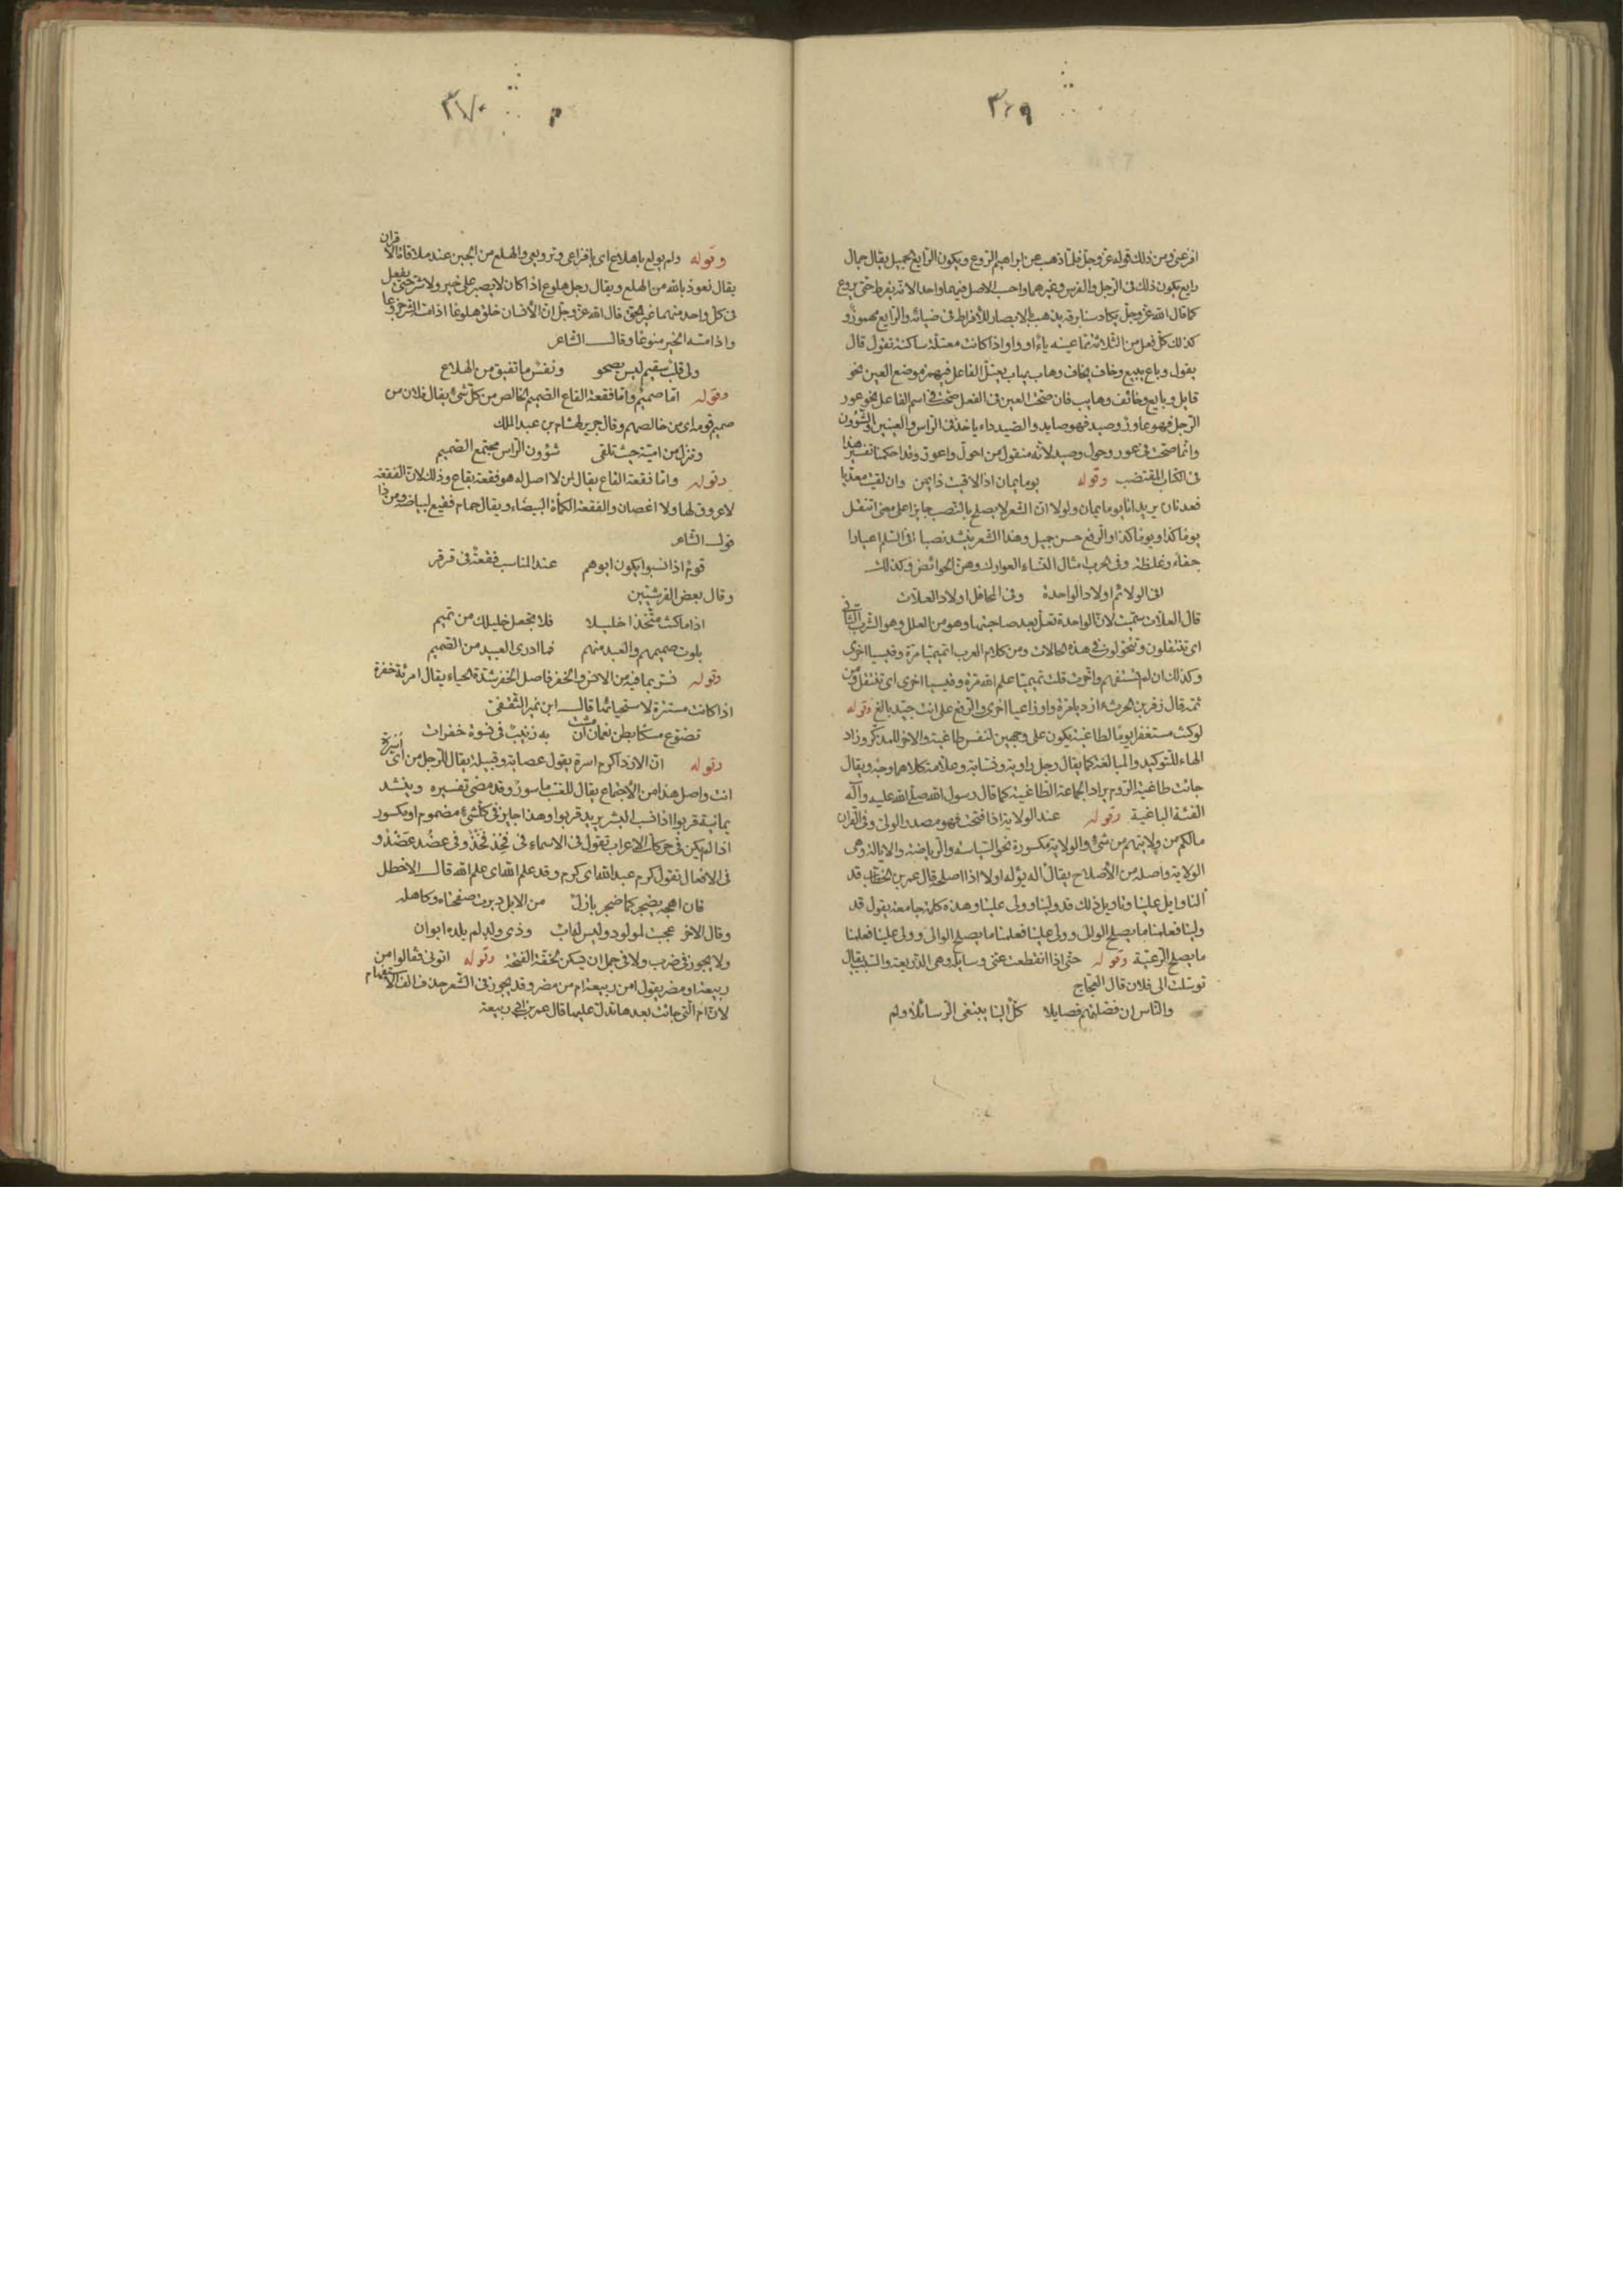 ٣٦٩
افزعنى ومن ذلك قوله عز وجل فلما ذهب عن ابراهيم الروع ويكون الرايع الجميل يقال جمال
رايع يكون ذلك فى الرجل والفرس وغيرهما واحسب الاصل فيهما واحدا لانه يفرط حتى يروع
كما قال الله عز وجل يكاد سنا برقه يذهب بالابصار للافراط فى ضيائه والرايع مهموز و
كذلك كل فعل من الثلاثة مما عينه ياء او واو اذا كانت معتلة ساكنة تقول قال
يقول وباع يبيع وخاف يخاف وهاب يهاب يعتل الفاعل فيهمز موضع العين نحو
قايل وبايع وخائف وهايب فان صحت العين فى الفعل صحت فى اسم الفاعل نحو عور
الرجل فهو عاور وصيد فهو صايد والصيد داء ياخذ فى الراس والعينين والشؤون
وانما صحت فى عور وحول وصيد لانه منقول من احول واعور وقد احكمنا تفسير هذا
فى الكتاب المقتضب وقوله يوما يمان اذا لاقيت ذا يمن وان لقيت معديا
فعدنان يريد انا يوما يمان ولولا ان الشعر لا يصلح بالنصب جايزا على معنى اتنقل
يوما كذا ويوما كذا والرفع حسن جميل وهذا الشعر ينشد نصبا افى السلم اعيارا
جفاء وغلظة وفى الحرب امثال النساء العوارك وهن الحوائض وكذلك
افى الولائم اولادا لواحدة وفى المحافل اولادا لعلات
قال العلات سميت لان الواحدة تعل بعد صاحبتها وهو من العلل وهو الشرب الثانى
اى تتنقلون وتتحولون فى هذه الحالات ومن كلام العرب اتميميا مرة وقيسيا اخرى
وكذلك ان لم تستفهم واخبرت قلت تميميا علم الله مرة وقيسيا اخرى اى تتنقل ومن
ثمه قال زفر بن الحرث ازديا مرة واوزاعيا اخرى والرفع على انت جيد بالغ وقوله
لو كنت مستغفرا يوما لطاغية يكون على وجهين لنفس طاغية والاخر للمذكر وزاد
الهاء للتوكيد والمبالغة كما يقال رجل راوية ونسابة وعلامة كلاهما وجه ويقال
جائت طاغية الروم يراد الجماعة الطاغية كما قال رسول الله صلى الله عليه وآله
الفئة الباغية وقوله عند الولاية اذا فتحت فهو مصدر الولى وفى القران
مالكم من ولايتهم من شئ والولاية مكسورة نحو السياسة والرياضة والايالة وهى
الولاية واصله من الاصلاح يقال اله يؤله اولا اذا اصلحه قال عمر بن الخطاب قد
النا وايل علينا وتاويل ذلك قد ولينا وولى علينا وهذه كلمة جامعة يقول قد
ولينا فعلمنا ما يصلح الوالى وولى علينا فعلمنا ما يصلح الوالى وولى علينا فعلمنا
ما يصلح الرعية وقوله حتى اذا انقطعت عنى وسايله وهى الذريعة والسبب يقال
توسلت الى فلان قال العجاج
والناس ان فصلتهم فصايلا كل الينا يبتغى الرسائلا ولم
٣٧٠
وقوله ولم يولع باهلاع اى بافزاعى وترويعى والهلع من الجبن عند ملاقاة الاقران
يقال نعوذ بالله من الهلع ويقال رجل هلوع اذا كان لا يصبر على خير ولا شر حتى يفعل
فى كل واحد منهما غير الحق قال الله عز وجل ان الانسان خلق هلوعا اذا مسه الشر جزوعا
واذا مسه الخير منوعا وقال الشاعر
ولى قلب سقيم ليس يصحو ونفس ما تفيق من الهلاع
وقوله اما صميم واما فقعة القاع الصميم الخالص من كل شئ يقال فلان من
صميم قومه اى من خالصهم وقال جرير لهشام بن عبد الملك
وتنزل من امية حيث تلقى شؤون الراس مجتمع الصميم
وقوله واما فقعة القاع يقال لمن لا اصل له هو فقعة بقاع وذلك لان الفقعة
لا عروق لها ولا اغصان والفقعة الكمأة البيضاء ويقال حمام فقيع لبياضه ومن ذا
قول الشاعر
قوم اذا نسبوا يكون ابوهم عند المناسب فقعة فى قرقر
وقال بعض القرشيين
اذا ما كنت متخذا خليلا فلا تجعل خليلك من تميم
بلوت صميمهم والعبد منهم فما ادرى العبيد من الصميم
وقوله فستر بما فيه من الانس والخفر فاصل الخفر شدة الحياء يقال امرئة خفرة
اذا كانت مستترة لاستحيائها قال ابن نمير الثقفى
تضوع مسكا بطن نعمان ان مشت به زينب فى نسوة خفرات
وقوله ان الازد اكرم اسرة يقول عصابة وقبيلة يقال للرجل من اى اسرة
انت واصل هذا من الاجتماع يقال للقتب ماسور وقد مضى تفسيره وينشد
يمانية قربوا اذا نسب البشر يريد قربوا وهذا جايز فى كل شئ مضموم او مكسور
اذا لم يكن فى حركات الاعراب تقول فى الاسماء فى فخذ فخذ وفى عضد عضد و
فى الافعال تقول كرم عبد الله اى كرم وقد علم الله اى علم الله قال الاخطل
فان اهجه يضجر كما ضجر بازل من الابل دبرت صفحتاه وكاهله
وقال الاخر عجبت لمولود وليس له اب وذى ولد لم يلده ابوان
ولا يجوز فى ضرب ولا فى جمل ان يسكن لخفة الفتحة وقوله اتونى فقالوا من
ربيعة او مضر يقول امن ربيعة ام من مضر وقد يجوز فى الشعر حذف الف الاستفهام
لان ام التى جائت بعدها تدل عليها قال عمر بن ابى ربيعة